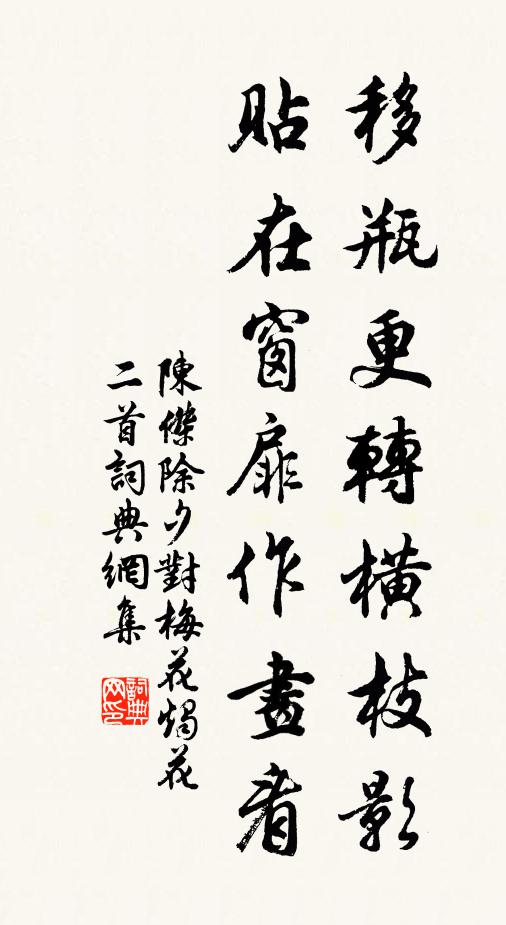 移瓶更轉橫枝影
貼在窗扉作畫看
陳傑除夕對梅花燭花
二首詞典網集
詞典网印